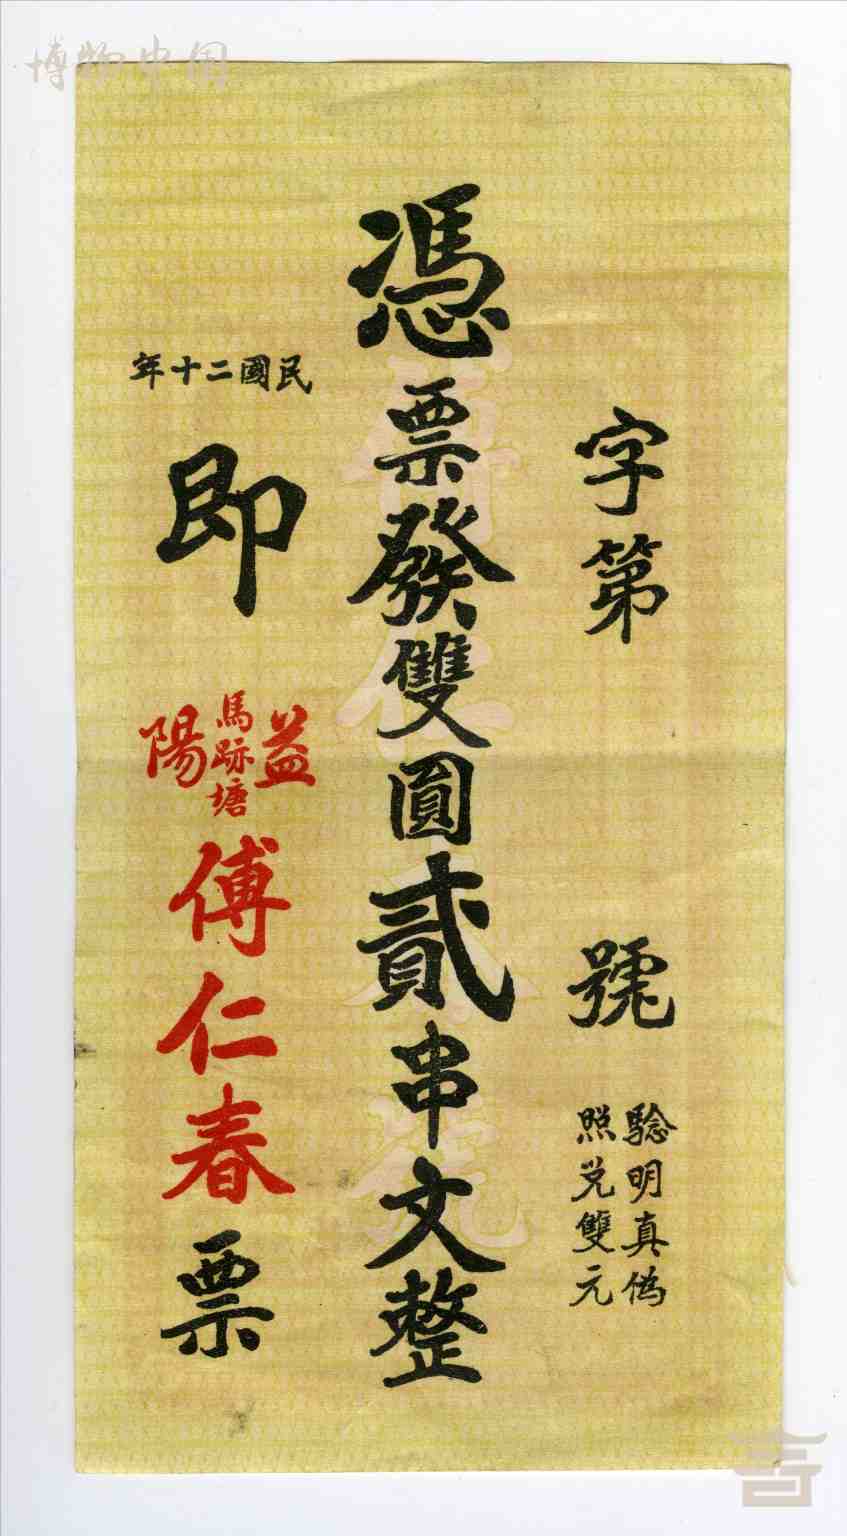 博物中国
字第 號
驗明真偽
照兑雙元
憑票發雙圓貳串文整
民國二十年
即
益陽
馬跡塘
傅仁春
票